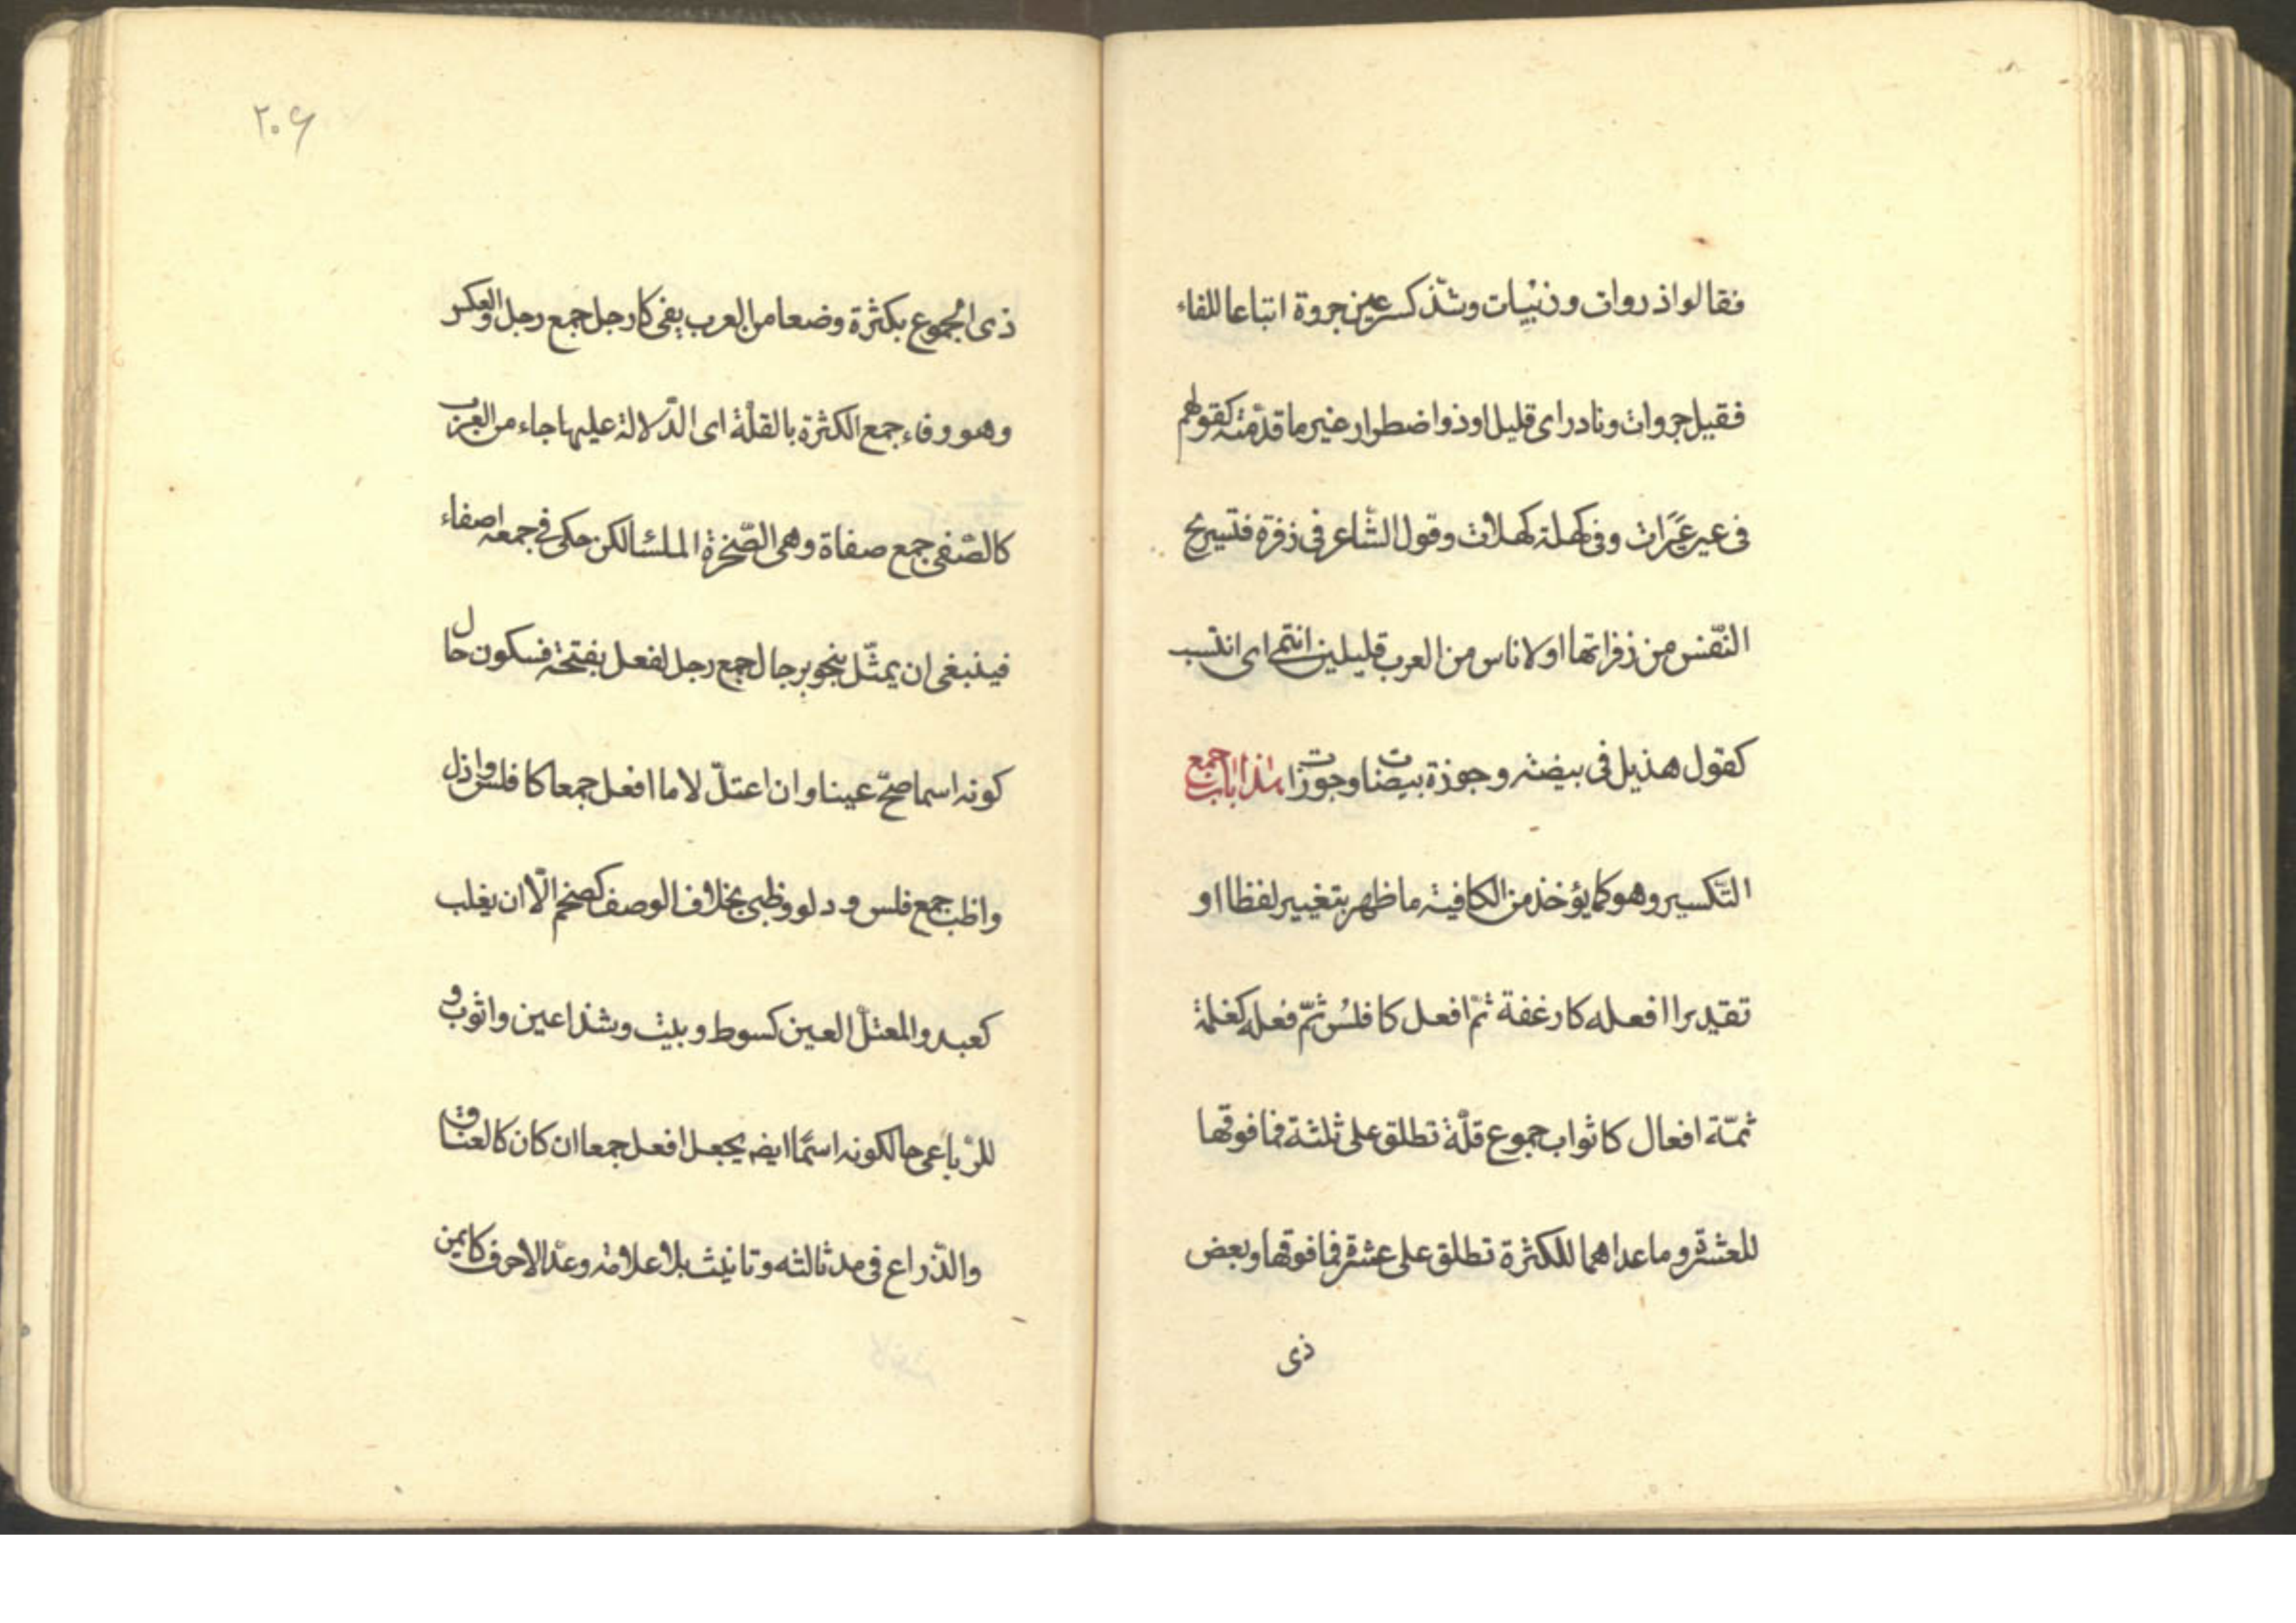 فقالوا ذروات وزبيات وشذ كسر عين جروة اتباعا للفاء
فقيل جروات ونادر اى قليل او ذو اضطرار غير ما قدّمته كقولهم
فى عير عيرات وفى كهلة كهلات وقول الشاعر فى زفرة فتسريح
النّفس من زفراتها او لاناس من العرب قليلين انتمى اى انتسب
كقول هذيل فى بيضة وجوزة بيضات وجوزات هذا باب جمع
التّكسير وهو كما يؤخذ من الكافية ما ظهر بتغيير لفظا او
تقديرا افعله كارغفة ثمّ افعل كافلس ثمّ فعله كغلمة
ثمّة افعال كاثواب جموع قلّة تطلق على ثلثة فما فوقها
للعشرة وما عداهما للكثرة تطلق على عشرة فما فوقها وبعض
ذى
۲۰۶
ذى الجموع بكثرة وضعا من العرب يفى كارجل جمع رجل والعكس
وهو وفاء جمع الكثرة بالقلّة اى الدّلالة عليها جاء من العرب
كالصّفى جمع صفاة وهى الصّخرة الملسا لكن حكى فى جمعه اصفاء
فينبغى ان يمثّل بنحو برجال جمع رجل لفعل بفتحة فسكون حال
كونه اسما صحّ عينا وان اعتلّ لاما افعل جمعا كافلس واذل
واظب جمع فلس ودلو وظبى بخلاف الوصف كضخم الّا ان يغلب
كعبد والمعتلّ العين كسوط وبيت وشذ اعين واثوب و
للرّباعى حالكونه اسمًا ايضه يجعل افعل جمعا ان كان كالعناق
والذّراع فى مد ثالثه وتانيث بلا علامة وعدّ الاحرف كايمن